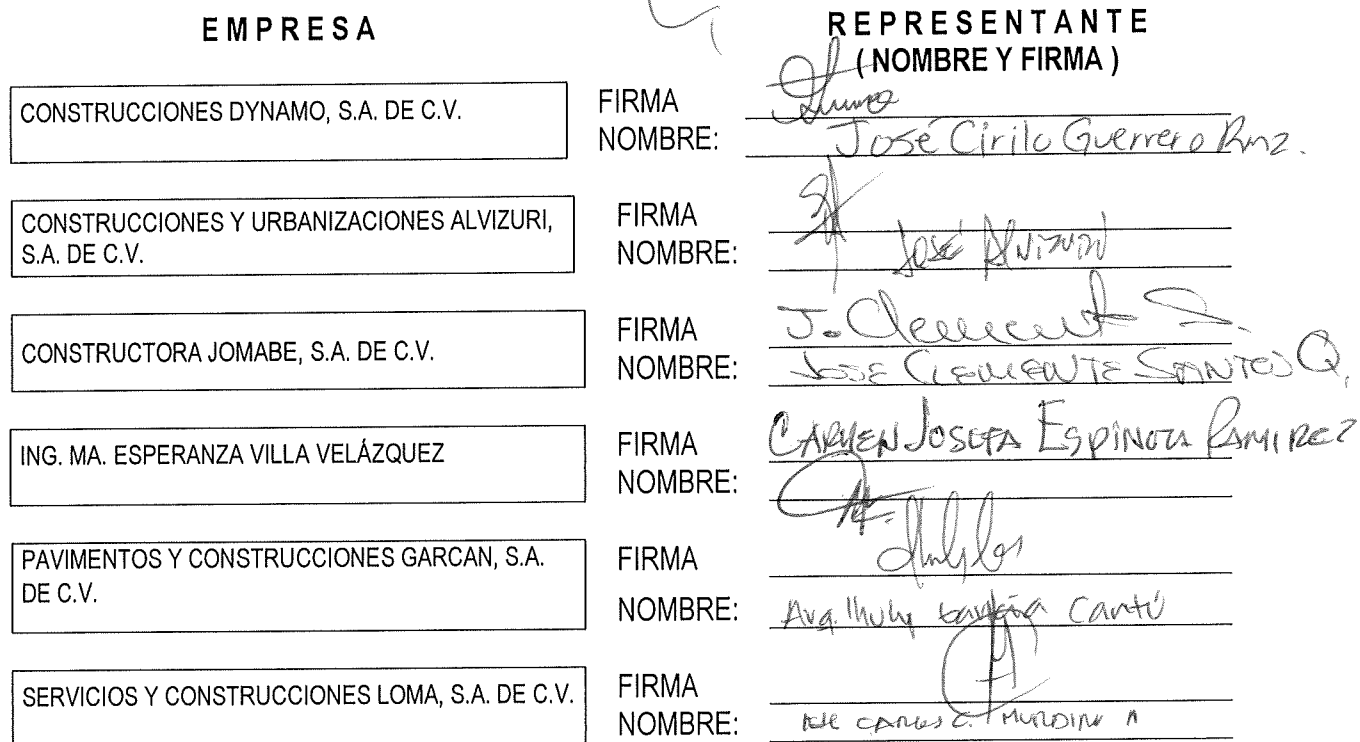 EMPRESA
REPRESENTANTE
( NOMBRE Y FIRMA )
CONSTRUCCIONES DYNAMO, S.A. DE C.V.
FIRMA
NOMBRE: José Cirilo Guerrero Rmz.
CONSTRUCCIONES Y URBANIZACIONES ALVIZURI,
S.A. DE C.V.
FIRMA
NOMBRE: José Alvizuri
CONSTRUCTORA JOMABE, S.A. DE C.V.
FIRMA J. Clement S.
NOMBRE: JOSE CLEMENTE SANTOS Q.
ING. MA. ESPERANZA VILLA VELÁZQUEZ
FIRMA CARMEN JOSEFA ESPINOZA RAMIREZ
NOMBRE:
PAVIMENTOS Y CONSTRUCCIONES GARCAN, S.A.
DE C.V.
FIRMA
NOMBRE: Cantú
SERVICIOS Y CONSTRUCCIONES LOMA, S.A. DE C.V.
FIRMA
NOMBRE: CARLOS